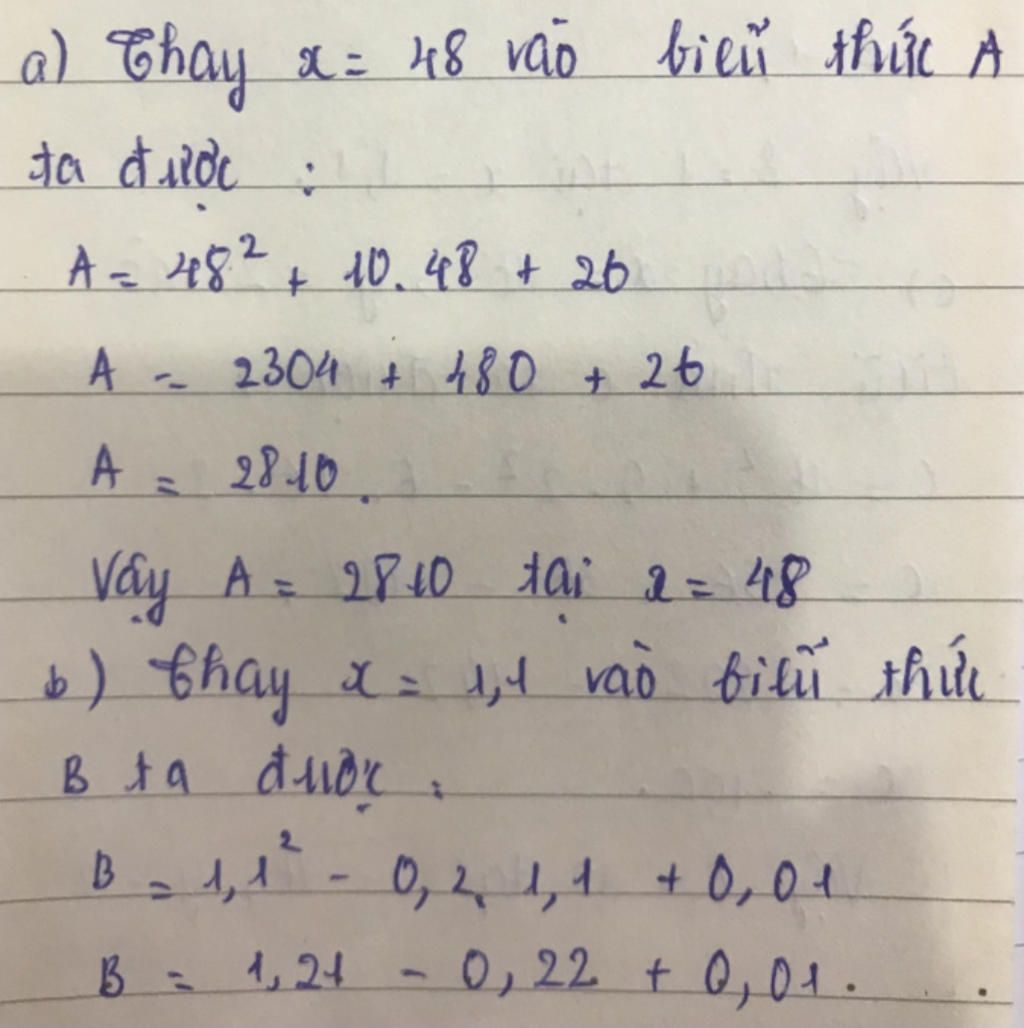 a) Thay x = 48 vào biểu thức A
ta được :
A = 48² + 10. 48 + 26
A = 2304 + 480 + 26
A = 2810.
Vậy A = 2810 tại x = 48
b) Thay x = 1,1 vào biểu thức
B ta được :
B = 1,1² - 0,2. 1,1 + 0,01
B = 1,21 - 0,22 + 0,01.